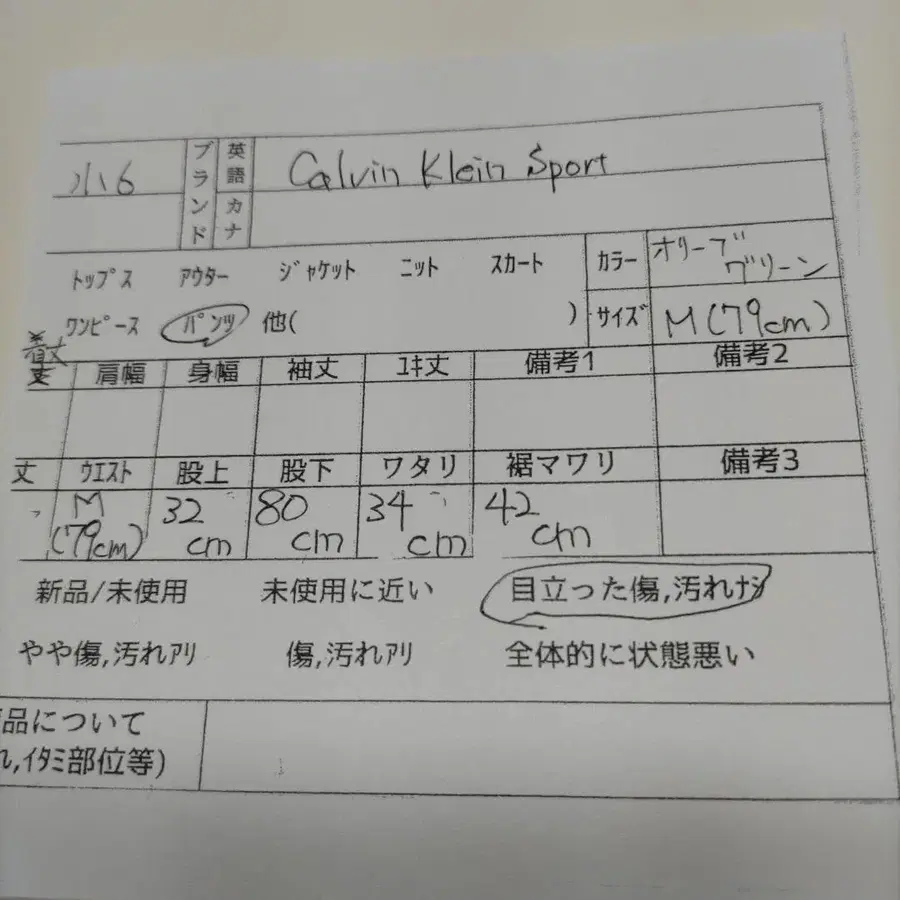 ブランド
英語
Calvin Klein Sport
カナ
トップス アウター ジャケット ニット スカート
カラー
オリーブ
グリーン
ワンピース パンツ 他( )
サイズ
M(79cm)
着丈
丈 肩幅 身幅 袖丈 ユキ丈 備考1 備考2
丈 ウエスト 股上 股下 ワタリ 裾マワリ 備考3
M 32 80 34 42
(79cm) cm cm cm cm
新品/未使用 未使用に近い 目立った傷,汚れナシ
やや傷,汚れアリ 傷,汚れアリ 全体的に状態悪い
品について
イタミ部位等)